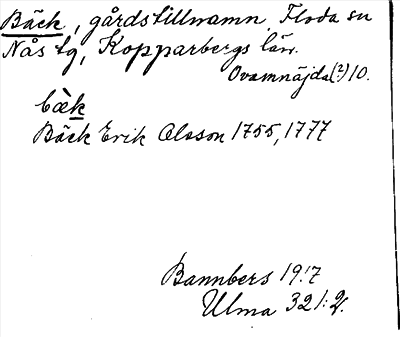 Bäck, gårdstillnamn. Floda sn
Nås tg, Kopparbergs län.
Ovamnäjda(?) 10.
bæ̀k
Bäck Erik Olsson 1755, 1777
Bannbers 19:7
Ulma 321:2.